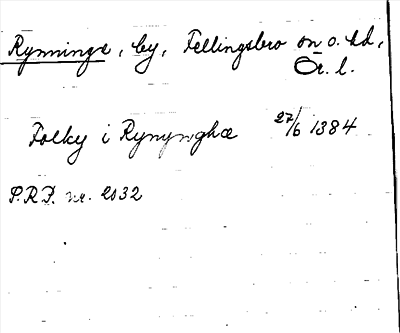 Rynninge, by, Fellingsbro sn o. hd,
Ör. l.
Folky i Rynynghæ 27/6 1384
S.R.P. nr. 2032